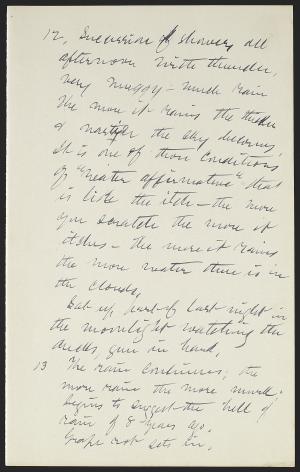 12, Succession of showers all
afternoon with thunder,
very muggy - much rain
The more it rains the thicker
& nastier the sky becomes,
It is one of those conditions
of "neater affirmative" that
is like the itch - the more
you scratch the more it
itches - the more it rains
the more water there is in
the clouds,
Sat up part of last night in
the moonlight watching the
ducks, gun in hand,
13 The rain continues; the
more rain the more much-
begins to suggest the hell of
rain of 8 years ago.
Grape rot sets in,